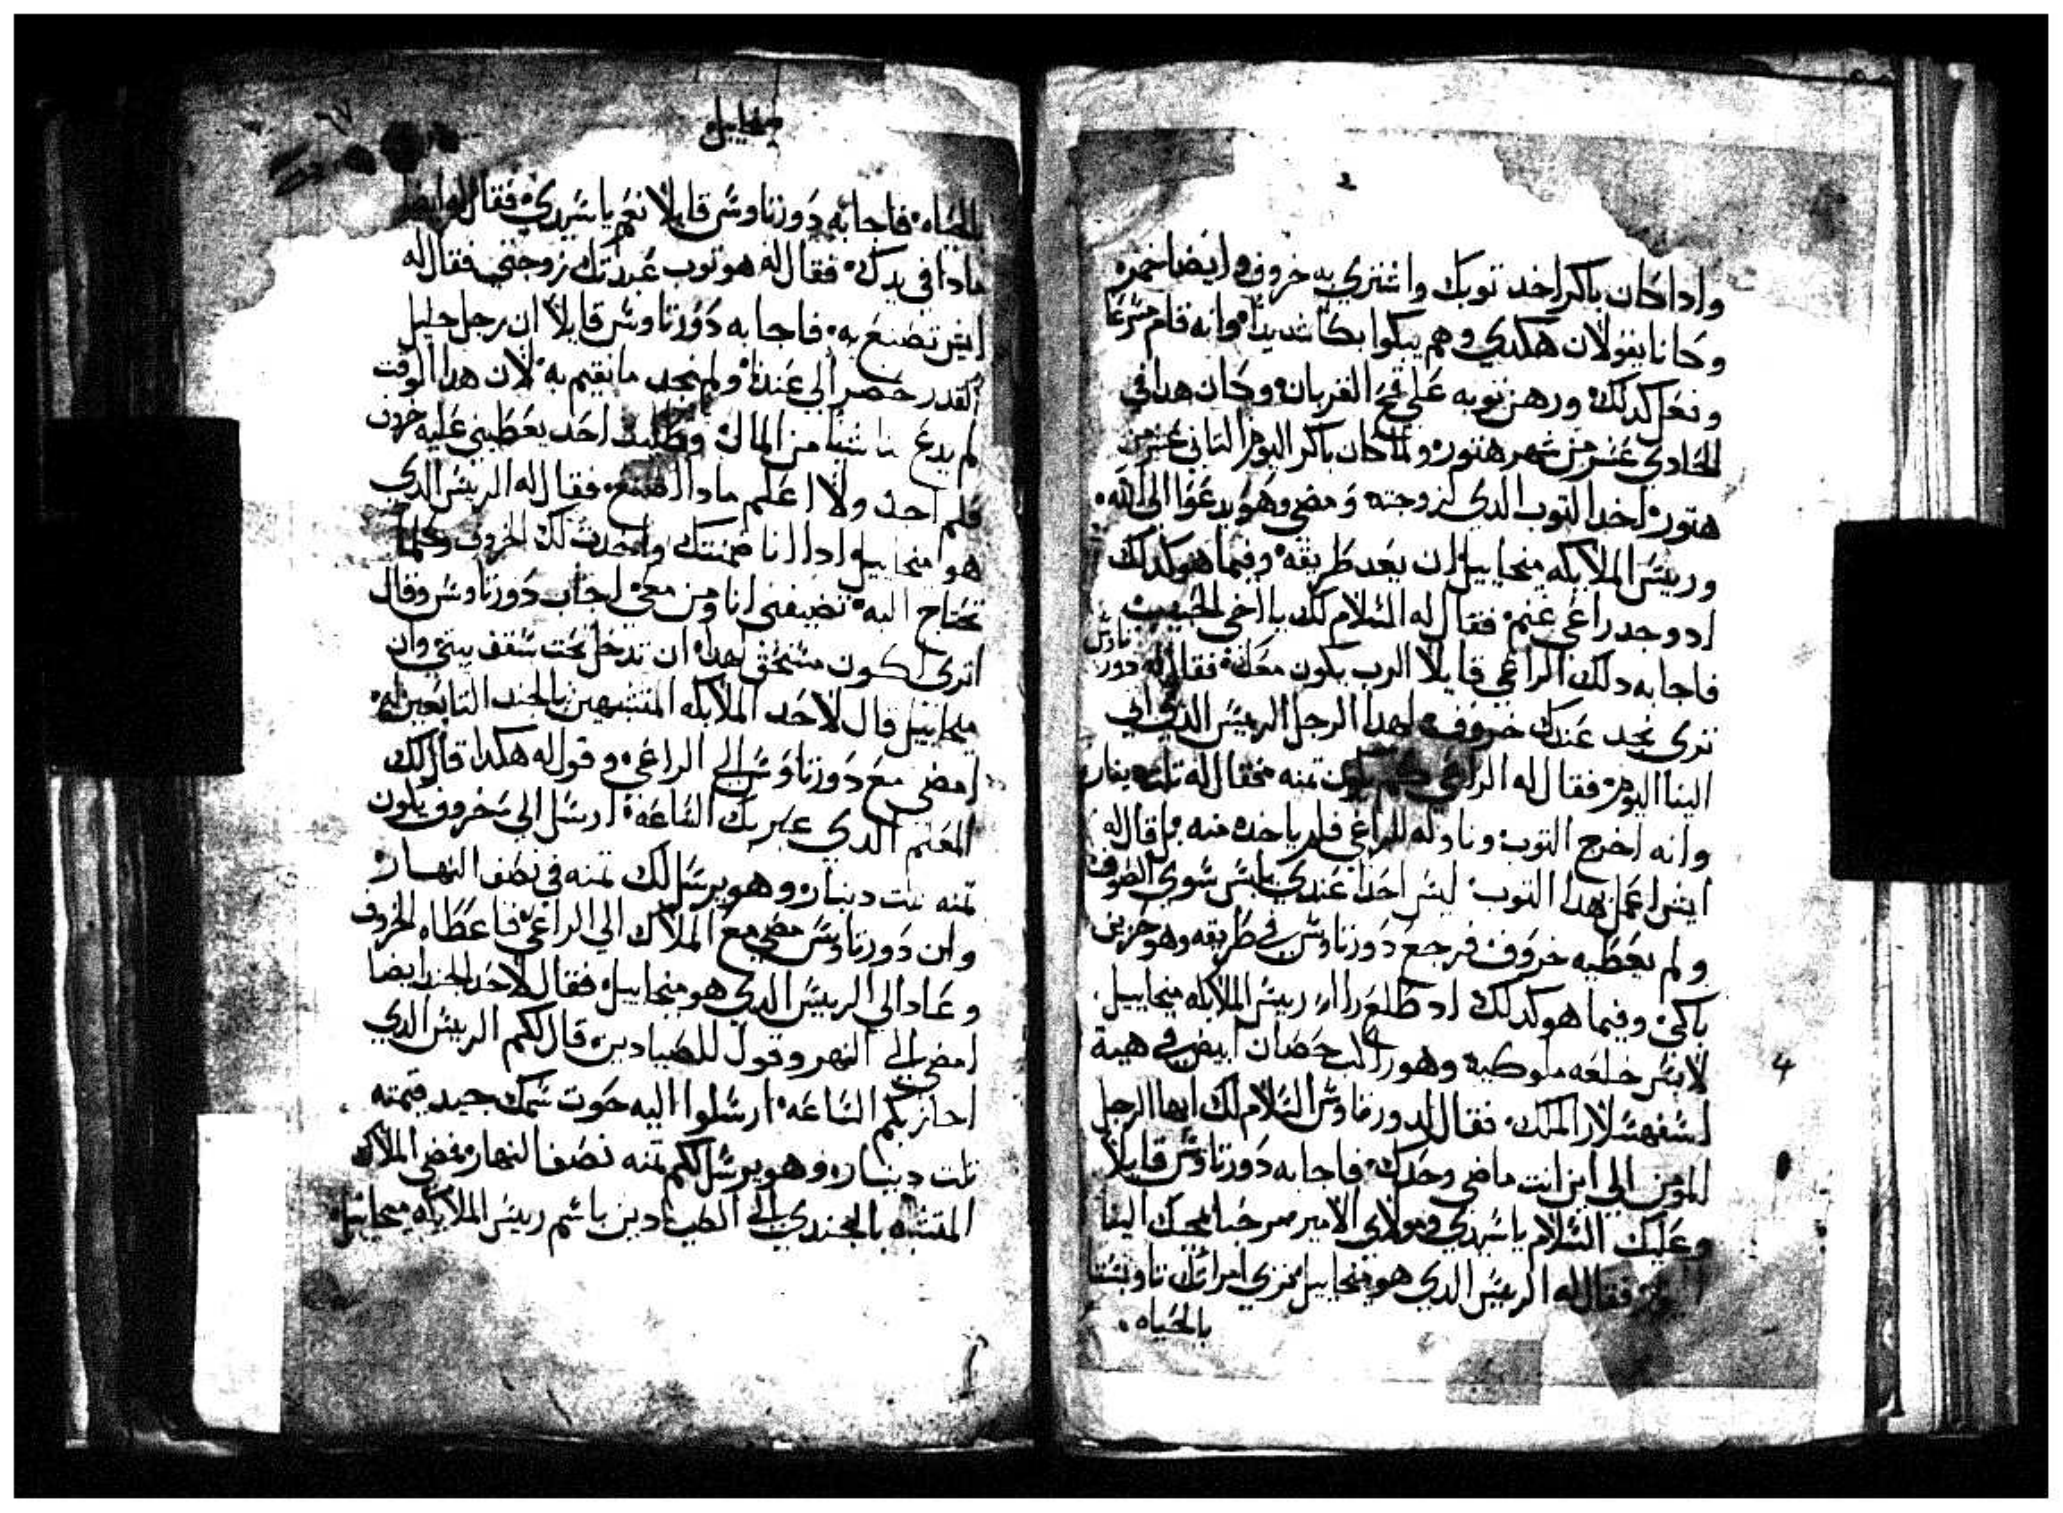 وادا كان باكر اخد توبك واشتري به خروف وايضا خمره
وكانا يقولان هكدي وهم يبكوا بكا شديدا وانه قام مسرعا
وفعل كدلك ورهن توبه علي قمح القربان وكان هدا في
الحادي عشر من شهر هتور ولما كان باكر اليوم التاني عشر من
هتور اخد التوب الدي لزوجته ومضي وهو يدعوا الي الله
وريس الملايكه ميخاييل ان يعد طريقه وفيما هو كدلك
اد وجد راعي غنم فقال له السلام لك يا اخي الحبيب
فاجابه دلك الراعي قايلا الرب يكون معك فقال له دور
ناوس
تري نجد عندك خروف لهدا الرجل الريس الدي اتي
الينا اليوم فقال له الراعي كم يكون تمنه فقال له تلت دينار
وانه اخرج التوب وناوله للراعي فلم ياخده منه بل قال له
ايش اعمل بهدا التوب ليس احدا عندي يلبس سوي الصوف
ولم يعطيه خروف فرجع دورتاوس في طريقه وهو حزين
باكي وفيما هو كدلك اد طلع راا ريس الملايكه ميخاييل
لابس خلعه ملوكيه وهو راكب حصان ابيض في هية
اسفهسلار الملك فقال لدورتاوس السلام لك ايها الرجل
المومن الي اين انت ماضي وحدك فاجابه دورتاوس قايلا
وعليك السلام يا سيدي ومولاي الامير مرحبا بمجيك الينا
فقال له الريس الدي هو ميخاييل تري امراتك تاوبستا
بالحياه
4
ميخاييل
بالحياه فاجابه دورتاوس قايلا نعم يا سيدي فقال له ايضا
مادا في يدك فقال له هو توب عبدتك زوجتي فقال له
ايش تصنع به فاجابه دورتاوس قايلا ان رجل جليل
القدر حضر الي عندنا ولم نجد ما نقيم به لان هدا الوقت
لم يدع لنا شيا من المال وطلبت احد يعطيني عليه خروف
فلم اجد ولا اعلم مادا اصنع فقال له الريس الدي
هو ميخاييل ادا انا ضمنتك واخدت لك الخروف وكلما
تحتاج اليه تضيفني انا ومن معي اجاب دورتاوس وقال
اتري اكون مستحق لهدا ان تدخل تحت سقف بيتي وان
ميخاييل قال لاحد الملايكه المتشبهين بالجند التابعين له
امضي مع دورتاوس الي الراعي وقول له هكدا قال لك
المعلم الدي عبر بك الساعه ارسل الي خروف يكون
تمنه تلت دينار وهو يرسل لك تمنه في نصف النهار
وان دورتاوس مضي مع الملاك الي الراعي فاعطاه الخروف
وعاد الي الريس الدي هو ميخاييل فقال لاحد الجند ايضا
امضي الي النهر وقول للصيادين قال لكم الريس الدي
اجاز بكم الساعه ارسلوا اليه حوت سمك جيد قيمته
تلت دينار وهو يرسل لكم تمنه نصف النهار فمضي الملاك
المتشبه بالجندي الي الصيادين باسم ريس الملايكه ميخاييل